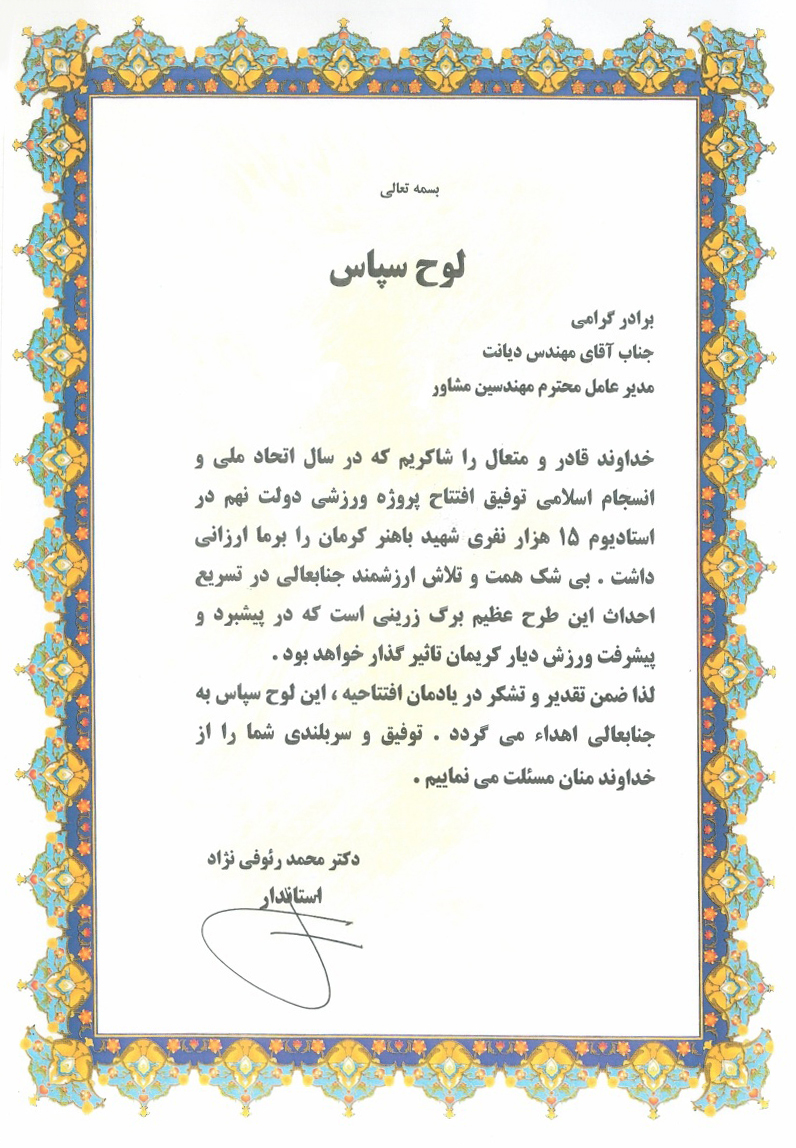 بسمه تعالی
لوح سپاس
برادر گرامی
جناب آقای مهندس دیانت
مدیر عامل محترم مهندسین مشاور
خداوند قادر و متعال را شاکریم که در سال اتحاد ملی و
انسجام اسلامی توفیق افتتاح پروژه ورزشی دولت نهم در
استادیوم ۱۵ هزار نفری شهید باهنر کرمان را برما ارزانی
داشت . بی شک همت و تلاش ارزشمند جنابعالی در تسریع
احداث این طرح عظیم برگ زرینی است که در پیشبرد و
پیشرفت ورزش دیار کریمان تاثیر گذار خواهد بود .
لذا ضمن تقدیر و تشکر در یادمان افتتاحیه ، این لوح سپاس به
جنابعالی اهداء می گردد . توفیق و سربلندی شما را از
خداوند منان مسئلت می نماییم .
دکتر محمد رئوفی نژاد
استاندار